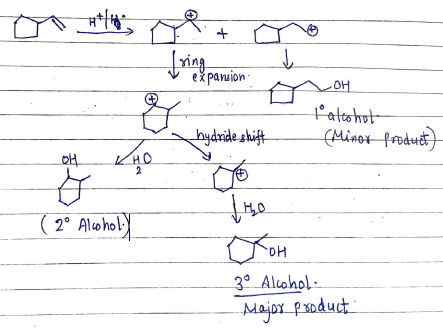 H⁺/H₂O
⊕
+
⊕
ring
expansion
OH
1° alcohol.
(Minor product)
⊕
hydride shift
H₂O
OH
⊕
(2° Alcohol)
H₂O
OH
3° Alcohol.
Major product